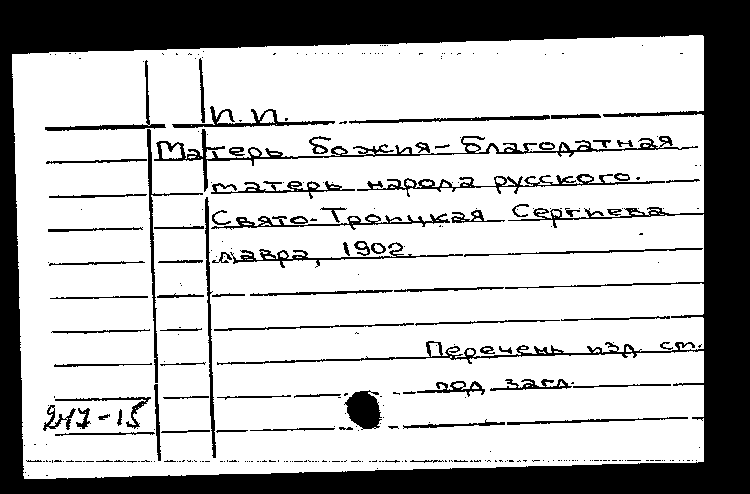 П. П.
Матерь божия- благодатная
матерь народа русского.
Свято-Троицкая Сергиева
лавра, 1902.
Перечень изд. см.
под загл.
247-15